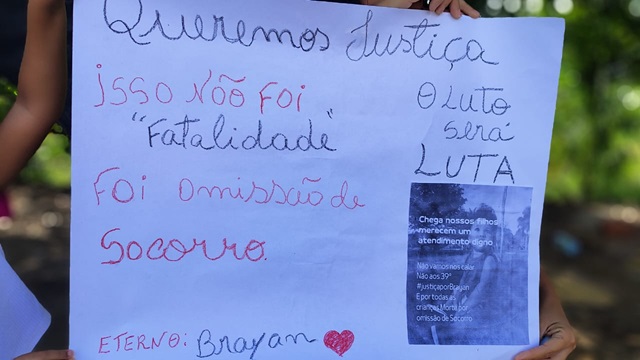 Queremos Justiça
isso Não Foi
"Fatalidade"
Foi omissão de
Socorro.
O LUTO
será
LUTA
Chega nossos filhos
merecem um
atendimento digno
Não vamos nos calar
Não aos 39°
#justiçaporBrayan
E por todas as
crianças Morta por
omissão de Socorro
ETERNO: Brayan